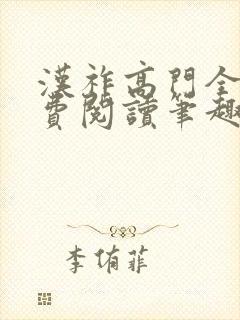 漢祚高門全
費閱讀筆趣
李侑菲